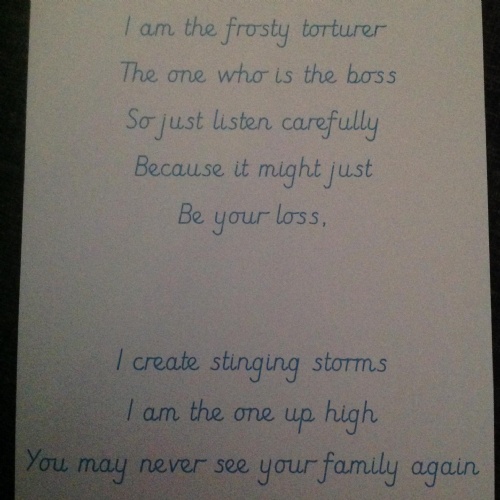 I am the frosty torturer
The one who is the boss
So just listen carefully
Because it might just
Be your loss,
I create stinging storms
I am the one up high
You may never see your family again